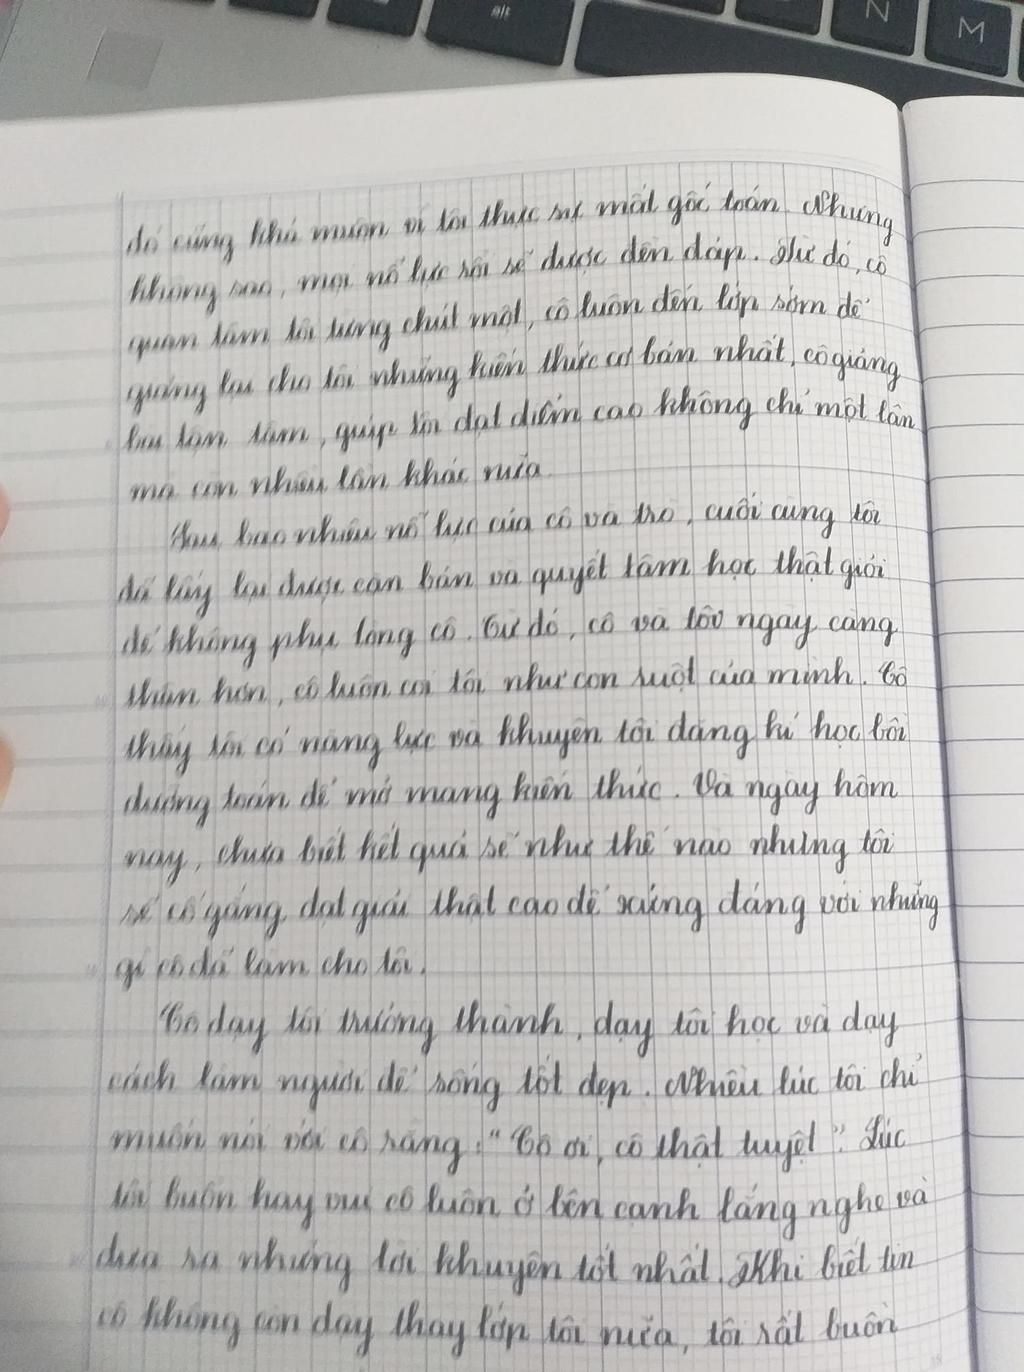 alt
N
M
đó cũng khá muộn vì tôi thực sự mất gốc toán. Nhưng
không sao, mọi nỗ lực rồi sẽ được đền đáp. Từ đó, cô
quan tâm tôi từng chút một, cô luôn đến lớp sớm để
giảng lại cho tôi những kiến thức cơ bản nhất, cô giảng
bài tận tâm, giúp tôi đạt điểm cao không chỉ một lần
mà còn nhiều lần khác nữa.
Sau bao nhiêu nỗ lực của cô và trò, cuối cùng tôi
đã lấy lại được căn bản và quyết tâm học thật giỏi
để không phụ lòng cô. Từ đó, cô và tôi ngày càng
thân hơn, cô luôn coi tôi như con ruột của mình. Cô
thấy tôi có năng lực và khuyên tôi đăng kí học bồi
dưỡng toán để mở mang kiến thức. Và ngày hôm
nay, chưa biết kết quả sẽ như thế nào nhưng tôi
sẽ cố gắng đạt giải thật cao để xứng đáng với những
gì cô đã làm cho tôi.
Cô dạy tôi trưởng thành, dạy tôi học và dạy
cách làm người để sống tốt đẹp. Nhiều lúc tôi chỉ
muốn nói với cô rằng: "Cô ơi, cô thật tuyệt". Lúc
tôi buồn hay vui cô luôn ở bên cạnh lắng nghe và
đưa ra những lời khuyên tốt nhất. Khi biết tin
cô không còn dạy thay lớp tôi nữa, tôi rất buồn